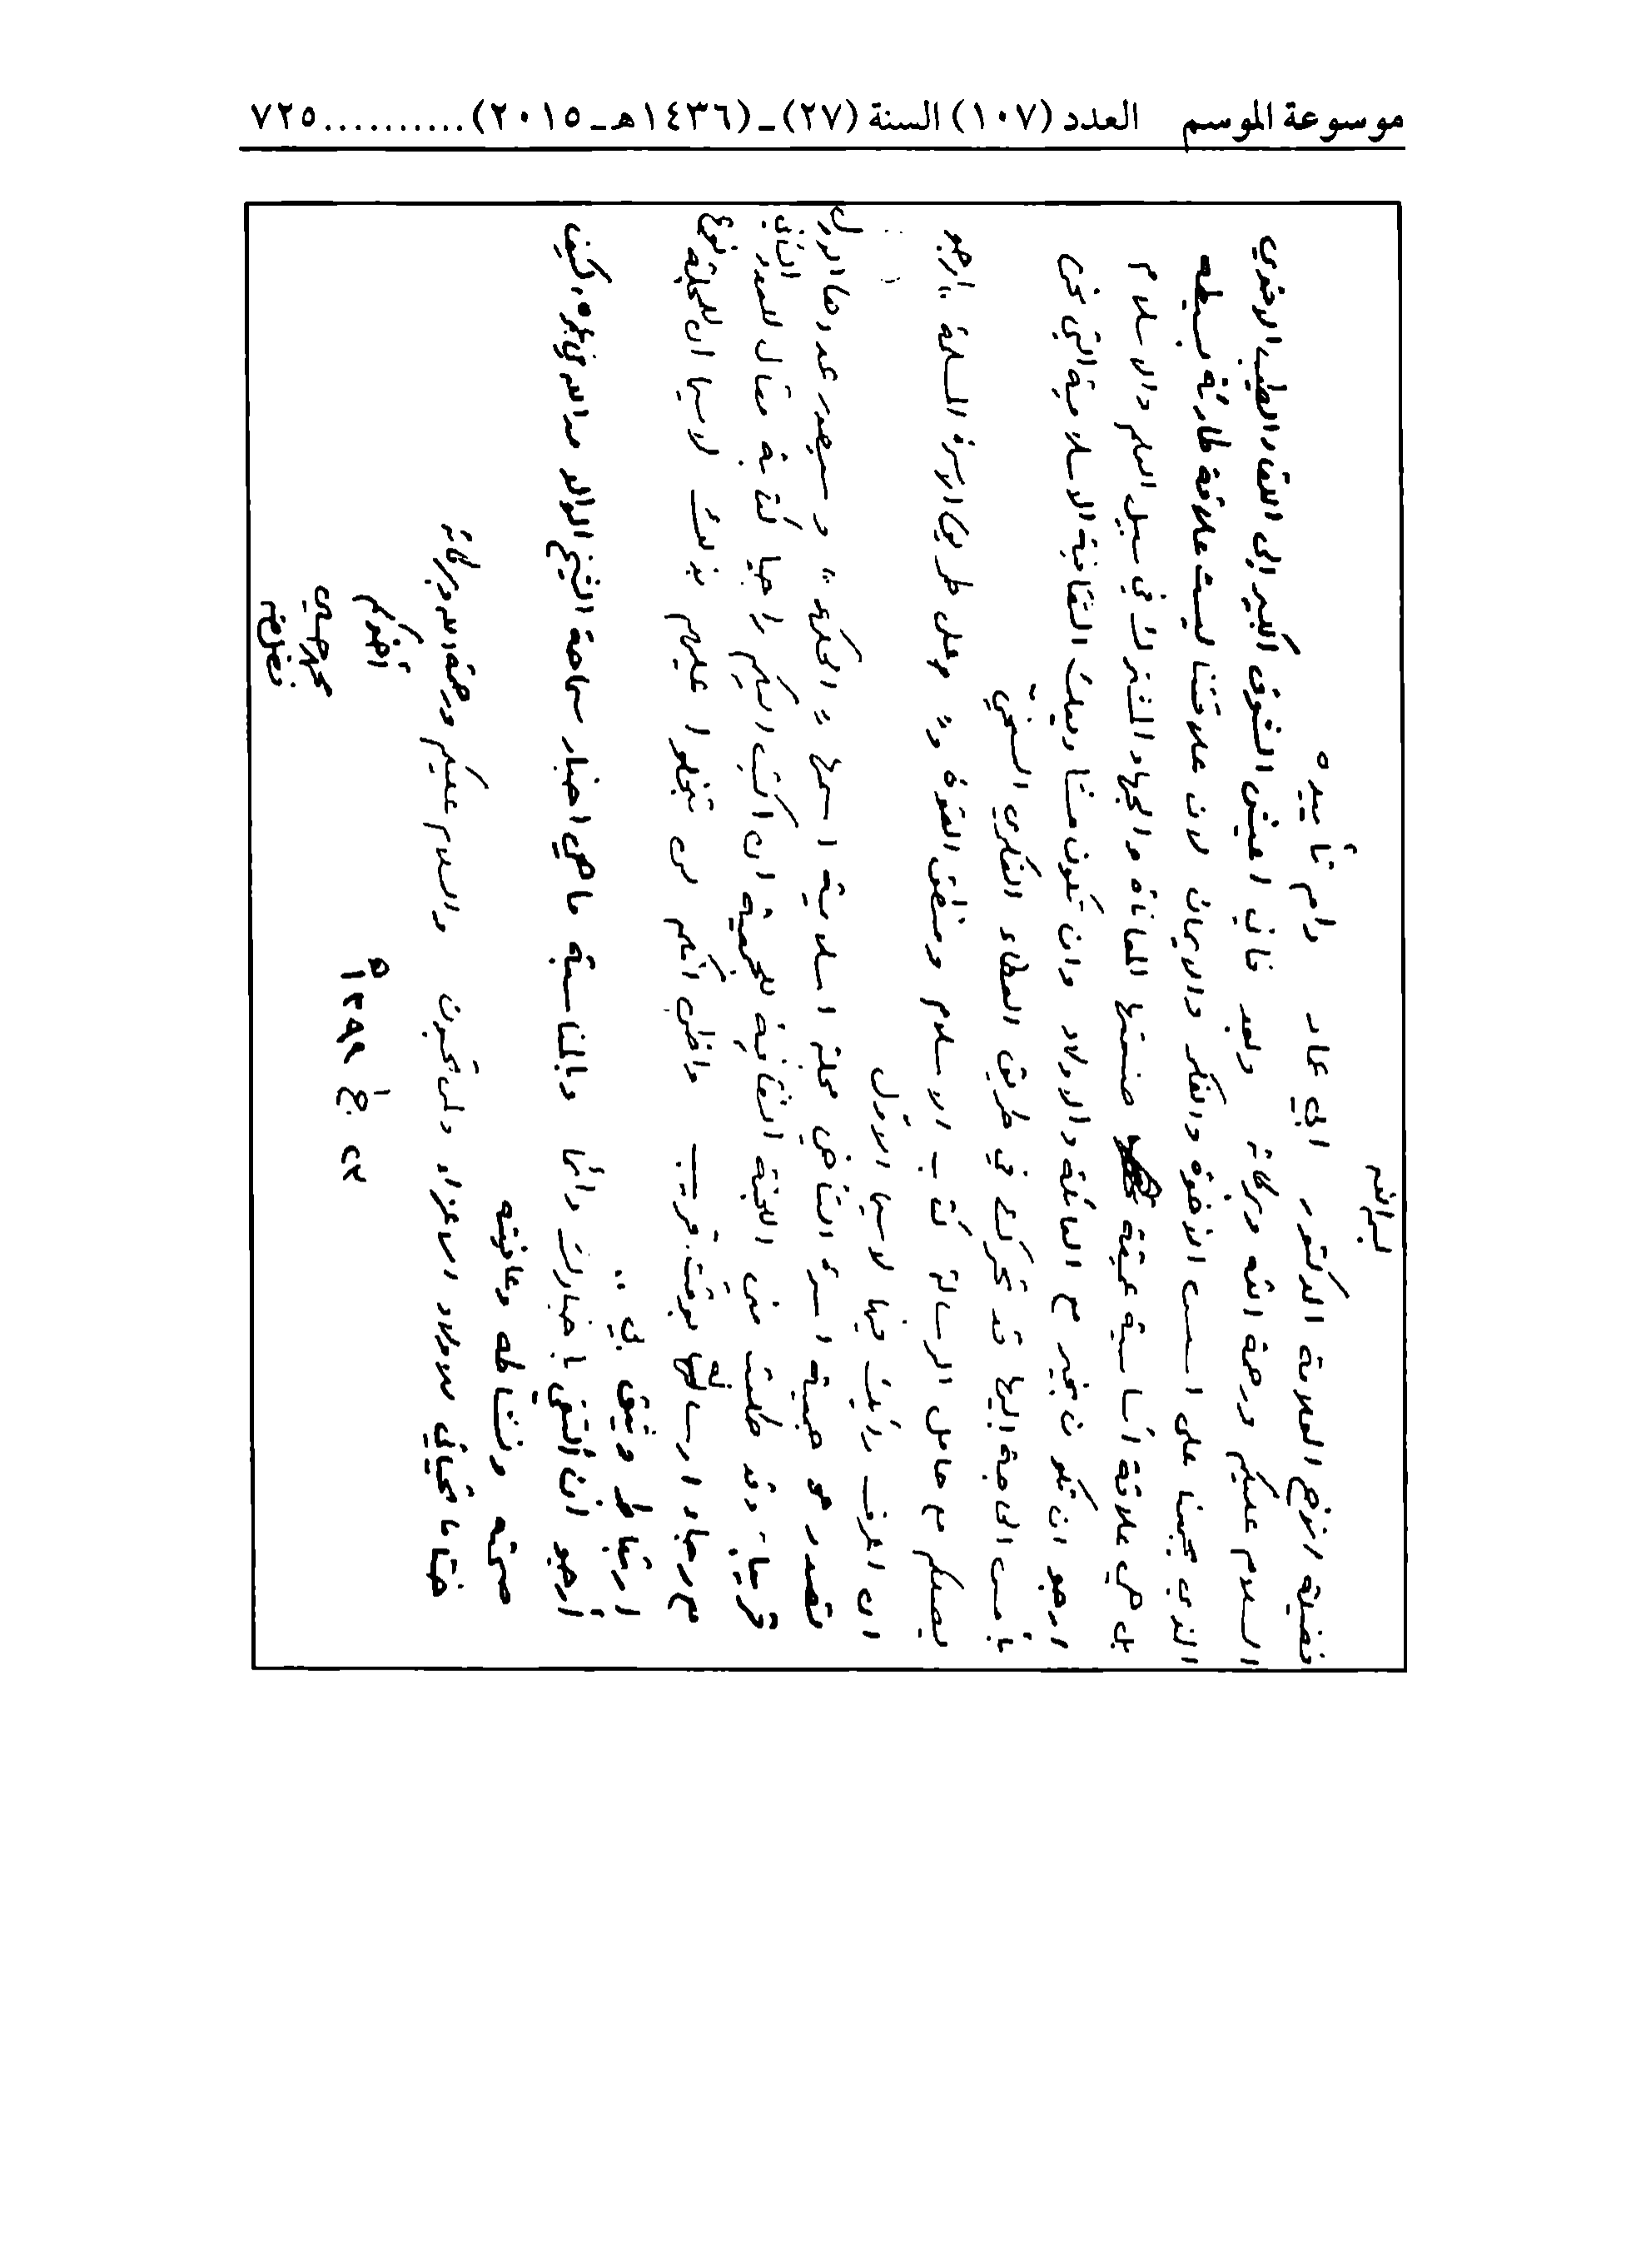 موسوعة الموسم العدد (١٠٧) السنة (٢٧) ـ (١٤٣٦هـ ـ ٢٠١٥) .......... ٧٢٥
بسم الله
فضيلة الأخ العلامة الدكتور ابي عماد دام تأييده
السلام عليكم ورحمة الله وبركاته وبعد فاني اعيش الشوق الكبير الى اللقاء الطيب الاخوي
الذي يجمعنا على اسس الاخوة والفكر والايمان لان علاقتنا ليست علاقة طارئة بسيطة
بل هي علاقة أساسية عميقة صنعتها المعاناة والجهاد المشترك في سبيل العلم والاسلام
ارجو ان تكون بخير مع العائلة والاولاد وان تكون مشاريعك الثقافية الاسلامية التي نحن
بأمس الحاجة اليها قد تحركت في طريق العطاء الفكري السخيّ
يصلكم مع حامل الرسالة كتاب الاسلام ومنطق القوة و" على طريق الاسرة المسلمة" ارجو
ان اعرف رأيك فيها لاسيما الاول
تصدر هو جمعية اسرة التآخي مجلة اسلامية اسمها " الحكمة " وسيصدر عددها الاول
قريباً وقد طلبت مني اللجنة الثقافية للجمعية ان اكتب اليكم راجيا كتابة مقال للعدد الثاني
مع رجاء ارساله بوقت قريب واظن أنكم لن تبخلوا عليهم بذلك لاسيما ان للمجلة نوع
ارتباط وثيق بي ..
أرجو ان ألتقي بأخبارك دائما وبالمناسبة ما هي اخبار سماحة الشيخ الوالد مد الله في عمره، كيف
صحته ونشاطه وعافيته
ختاما تحياتي للاولاد الاعزاء ولمن تحبون والسلام عليكم ورحمة الله وبركاته
أخوكم
٢٣ ج١ ١٣٩٩ه
محمد حسين
فضل الله